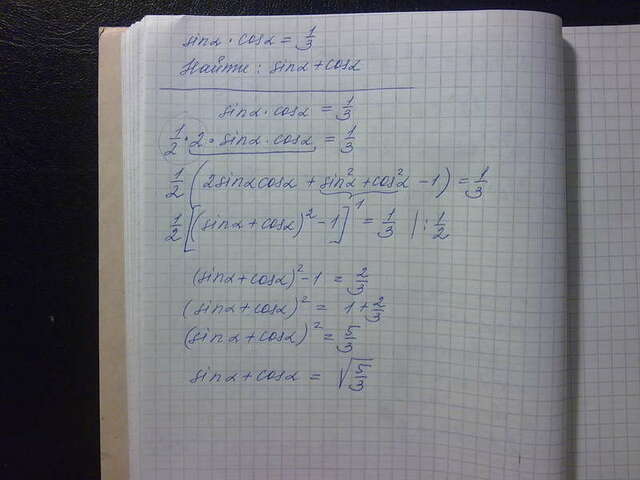 sinα · cosα = 1/3
Найти: sinα + cosα
sinα · cosα = 1/3
1/2 · 2 · sinα · cosα = 1/3
1/2 (2sinα cosα + sin²α + cos²α - 1) = 1/3
1
1/2 [(sinα + cosα)² - 1] = 1/3 | : 1/2
(sinα + cosα)² - 1 = 2/3
(sinα + cosα)² = 1 + 2/3
(sinα + cosα)² = 5/3
sinα + cosα = √5/3